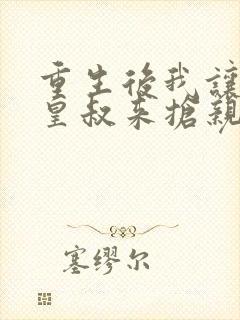 重生後我讓
皇叔来搶親
塞缪尔